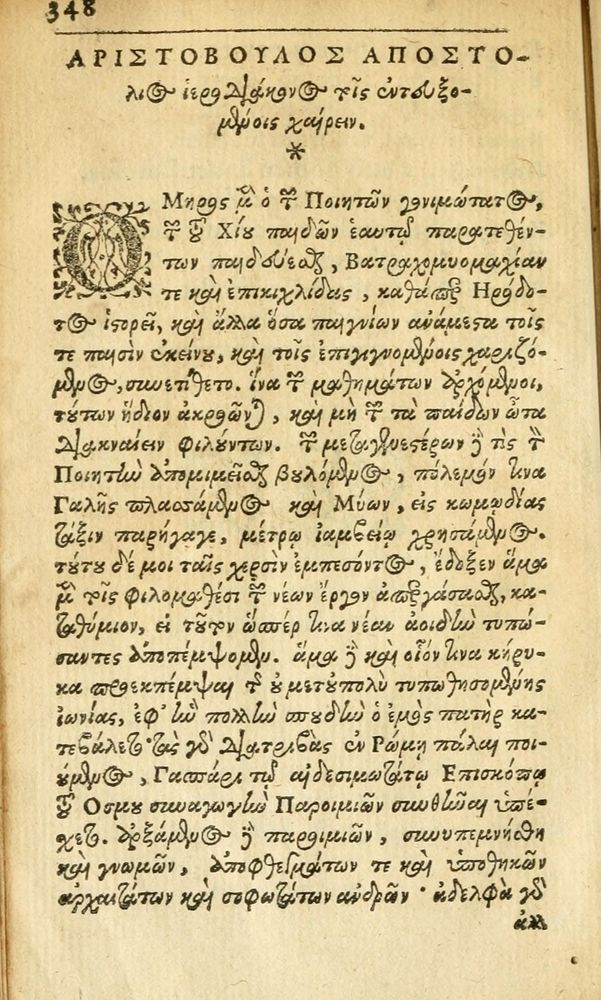 348
ΑΡΙΣΤΟΒΟΥΛΟΣ ΑΠΟΣΤΟ-
λιος ἱεροδιάκονος τοῖς ἐντευξο-
μένοις χαίρειν.
*
ΟΜηρος μὲν ὁ τῶν Ποιητῶν γονιμώτατος,
τῶν τοῦ Χίου παίδων ἑαυτῷ παρατεθέν-
των παιδεύεσθαι, Βατραχομυομαχίαν
τε καὶ ἐπικιχλίδας, καθάπερ Ηρόδο-
τος ἱστορεῖ, καὶ ἄλλα ὅσα παιγνίων ἀνάμεστα τοῖς
τε παισὶν ἐκείνου, καὶ τοῖς ἐπιγιγνομένοις χαριζό-
μενος, συνετίθετο. ἵνα τῶν μαθημάτων ἀρχόμενοι,
τούτων ἥδιον ἀκροῶνται, καὶ μὴ τῶν τὰ παίδων ὦτα
διακναίειν φιλούντων. τῶν μεταγενεστέρων δέ τις τὸν
Ποιητὴν ἀπομιμεῖσθαι βουλόμενος, πόλεμόν τινα
Γαλῆς πλασάμενος καὶ Μύων, εἰς κωμῳδίας
τάξιν παρήγαγε, μέτρῳ ἰαμβείῳ χρησάμενος.
τούτου δέ μοι ταῖς χερσὶν ἐμπεσόντος, ἔδοξεν ἅμα
μὲν τοῖς φιλομαθέσι τῶν νέων ἔργον ἀπεργάσασθαι, κα-
ταθύμιον, εἰ τοῦτον ὥσπέρ τινα νέαν ἀοιδὴν τυπώ-
σαντες ἀποπέμψομεν. ἅμα δὲ καὶ οἷόν τινα κήρυ-
κα προεκπέμψαι τῆς οὐ μετὐπολὺ τυπωθησομένης
ἰωνίας, ἐφ' ἣν πολλὴν σπουδὴν ὁ ἐμὸς πατὴρ κα-
τεβάλετο· τὰς γὰρ διατριβὰς ἐν Ρώμῃ πάλαι ποι-
ούμενος, Γασπάρι τῷ αἰδεσιμωτάτῳ Επισκόπῳ
τοῦ Οσμου συναγωγὴν Παροιμιῶν συνθεῖναι ὑπέ-
χετο. ἀρξάμενος δὲ παροιμιῶν, συνυπεμνήσθη
καὶ γνωμῶν, ἀποφθεγμάτων τε καὶ ὑποθηκῶν
ἀρχαιοτάτων καὶ σοφωτάτων ἀνδρῶν· ἀδελφὰ γὰρ
ἀλλ